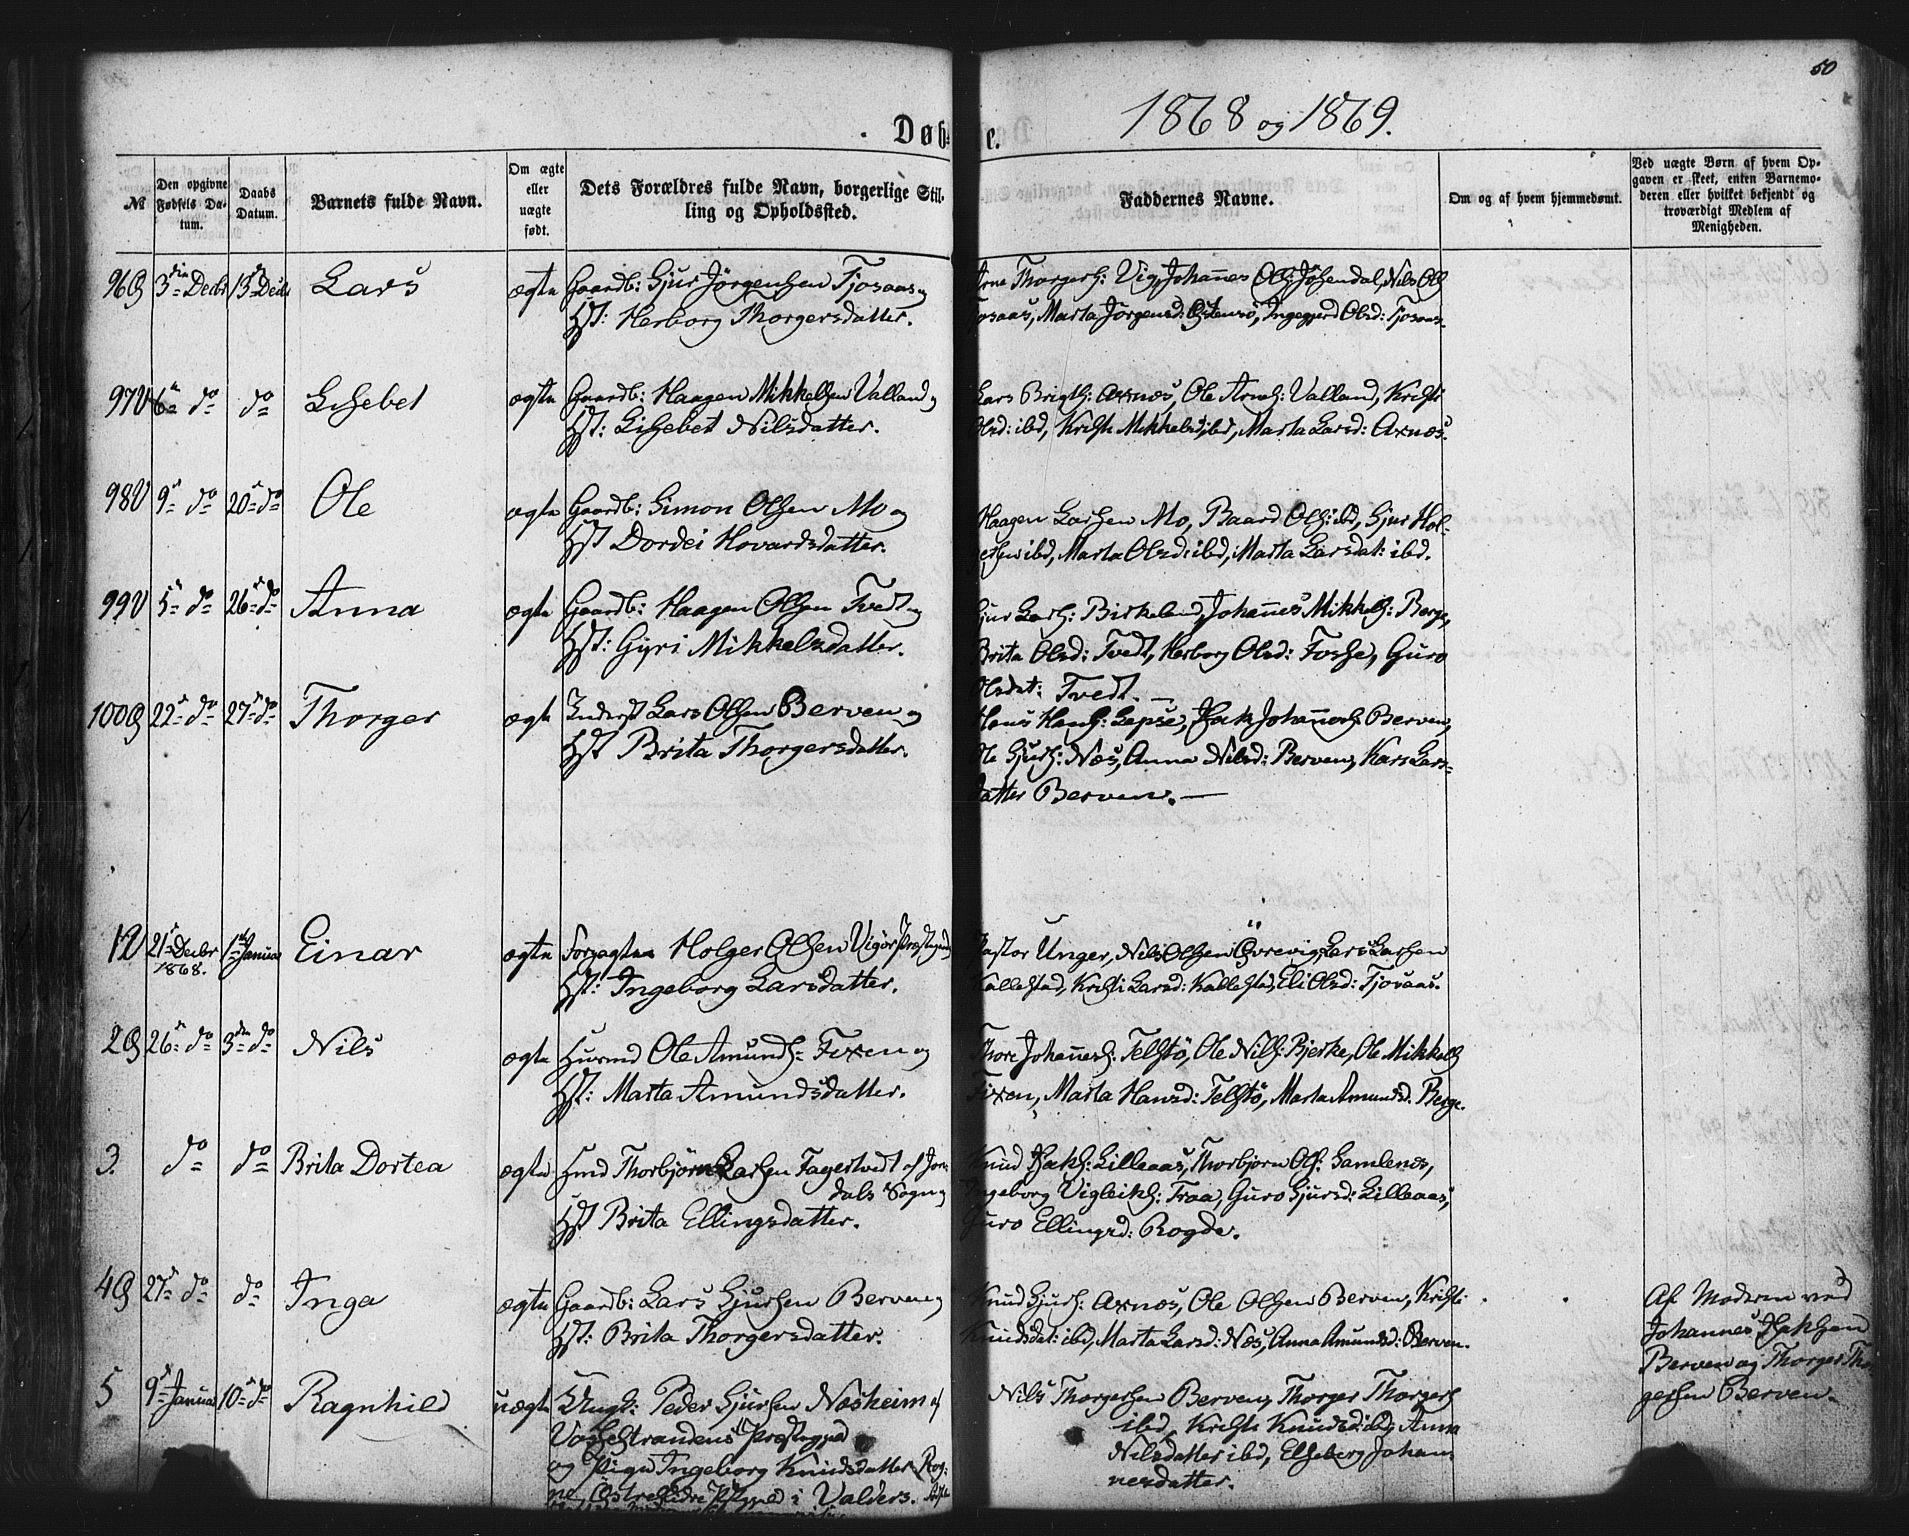 50
Døbte.
1868 og 1869.
№
Den opgivne Fødsels Da-
tum.
Daabs
Datum.
Barnets fulde Navn.
Om ægte
eller
uægte
født.
Dets Forældres fulde Navn, borgerlige Stil-
ling og Opholdssted.
Faddernes Navne.
Om og af hvem hjemmedømt.
Ved uægte Børn af hvem Op-
gaven er skeet, enten Barnemo-
deren eller hvilket bekjendt og
troværdigt Medlem af
Menigheden.
96 3die Decbr 13de Decbr Lars ægte Gaardb: Sjur Jörgensen Tjosaas og
Hst: Herborg Thorgersdatter.
Arne Thorgers: Vig, Johannes Ols: Nils Ols
Tjosaas, Marta Jörgensd: Ingegjerd Olsd: Tjosaas.
97 6te do do Lisebet ægte Gaardb: Haagen Mikkelsen Valland og
Hst: Lisebet Nilsdatter.
Lars Brigts: Axnæs, Ole Arnes: Valland, Kristi
Olsd: ibd, Kristi Mikkelsd: ibd, Marta Larsd: Axnæs.
98 9de do 20de do Ole ægte Gaardb: Simon Olsen Mo og
Hst Dordei Hovardsdatter.
Haagen Larsen Mo, Baard Ols: ibd, Sjur Hol-
gersen ibd, Marta Olsd: ibd, Marta Larsdat: ibd.
99 5te do 26de do Anna ægte Gaardb: Haagen Olsen Tvedt og
Hst: Gyri Mikkelsdatter.
Sjur Lars: Birkeland, Johannes Mikkels: Berge,
Brita Olsd: Tvedt, Herborg Olsd: Fosse, Guro
Olsdat: Tvedt. —
100 22de do 27de do Thorger ægte Inderst Lars Olsen Berven og
Hst Brita Thorgersdatter.
Hans Hans: Sepse, Isak Johannes Berven,
Ole Sjurs: Næs, Anna Nilsd: Berven, Kari Lars-
datter Berven. —
1 21de Decbr 1868. 1ste Januar Einar ægte Forpagter Holger Olsen Vigör Præstegaard
Hst: Ingeborg Larsdatter.
Pastor Unger, Nils Olsen Övrevig, Lars Larsen
Kallestad, Kristi Larsd: Kallestad, Eli Olsd: Tjosaas.
2 26de do 3die do Nils ægte Husmd Ole Amunds: Fixen og
Hst: Marta Amundsdatter.
Thore Johannes: Telstö, Ole Nils: Bjerke, Ole Mikkels
Fixen, Marta Hansd: Telstö, Marta Amundsd. Berge.
3. do do Brita Dortea ægte Hmd Thorbjörn Larsen Fagertvedt af Jon-
dals Sogn og
Hst Brita Ellingsdatter.
Knud Isaks: Lilleaas, Thorbjörn Ols: Samlenes,
Ingeborg Vigleiks: Traa, Guro Sjursd: Lilleaas,
Guro Ellingsd: Rogde.
4 27de do do Inga ægte Gaardb: Lars Sjursen Berven og
Hst: Brita Thorgersdatter.
Knud Sjurs: Axnæs, Ole Olsen Berven, Kristi
Knudsdat: ibd, Marta Larsd: Næs, Anna Amundsd: Berven.
5 9de Januar 10de do Ragnhild uægte Ungk: Peder Sjursen Næsheim af
Vossestrandens Præstegjeld
og Pige Ingeborg Knudsdatter Rog-
ne, Östre Slidre Pgjeld i Valders.
Nils Thorgersen Berven, Thorger Thorgers
ibd, Kristi Knudsd: ibd, Anna
Nilsdatter ibd, Elseberg Johan-
nesdatter.
Af Moderen ved
Johannes Isaksen
Berven og Thorger Thor
gersen Berven.